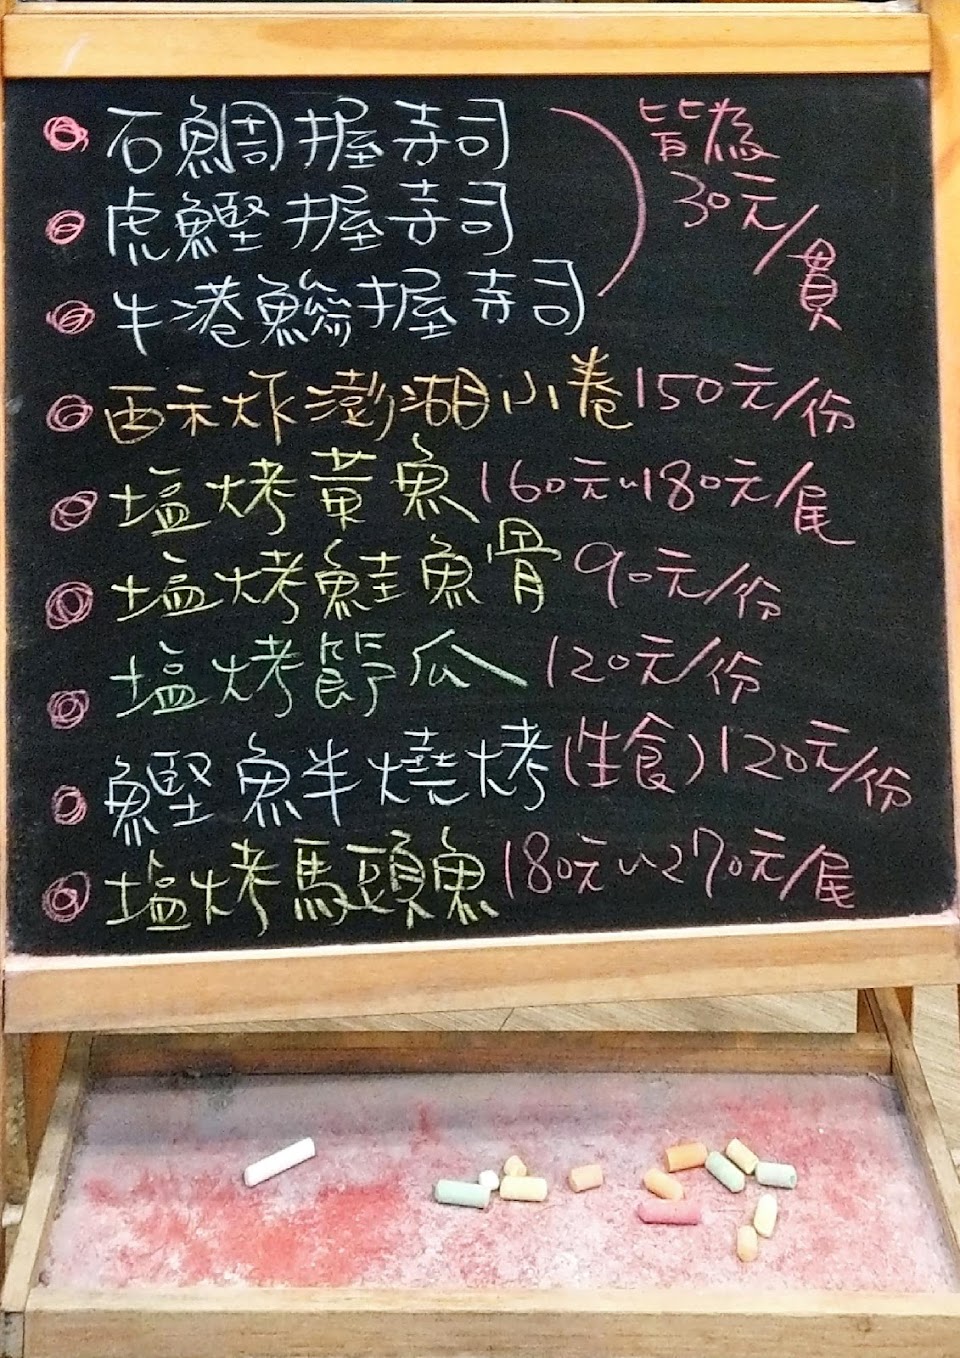 石鯛握寿司
虎鰹握寿司
牛港鰺握寿司
皆為
30元/貫
酥炸澎湖小卷150元/份
塩烤黃魚160元~180元/尾
塩烤鮭魚骨90元/份
塩烤節瓜120元/份
鰹魚半燒烤(生食)120元/份
塩烤馬頭魚180元~270元/尾